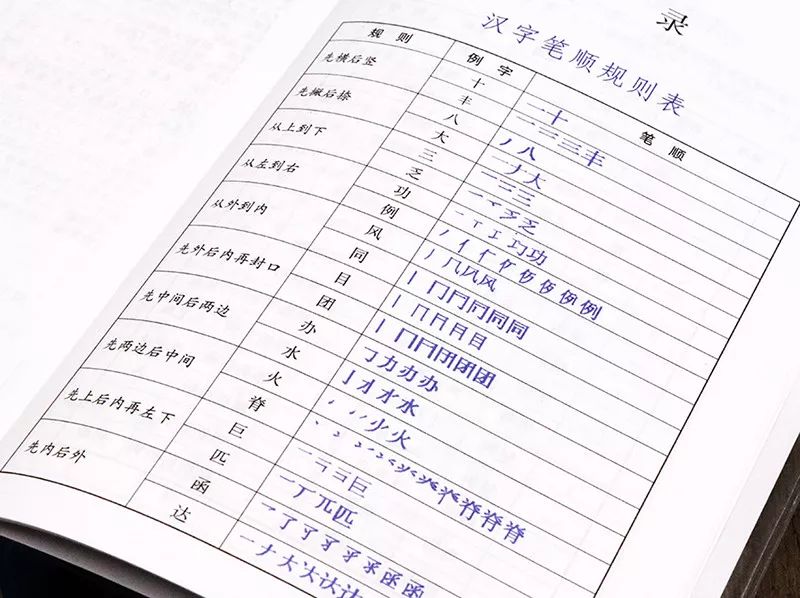 录
汉字笔顺规则表
规 则 例 字 笔 顺
先横后竖 十 一十
丰 一二三丰
先撇后捺 八 丿八
大 一ナ大
从上到下 三 一二三
乏
从左到右 功 一丁工巧功
例 丿亻例
从外到内 风 丿几风风
同 丨冂同同同
先外后内再封口 目 丨冂月月目
团 丨冂团团
先中间后两边 办 フ力办办
水 亅水
先两边后中间 火 火
脊 脊脊脊
先上后内再左下 巨 一巨
匹 一丆兀匹
先内后外 函 了函函
达 一ナ大达达